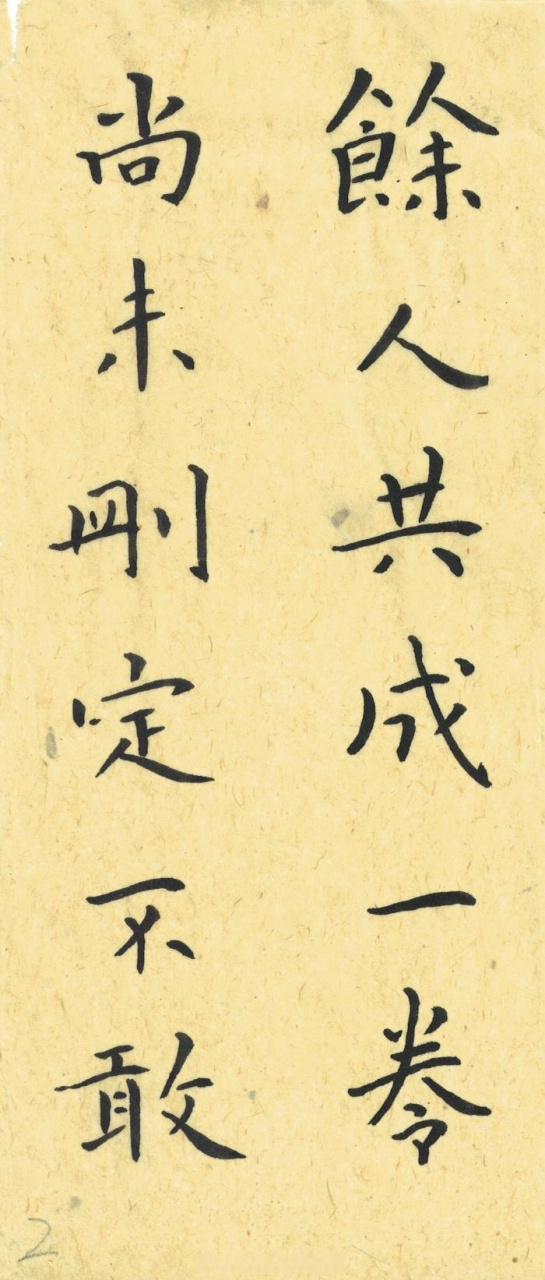 餘人共成一卷
尚未刪定不敢
2